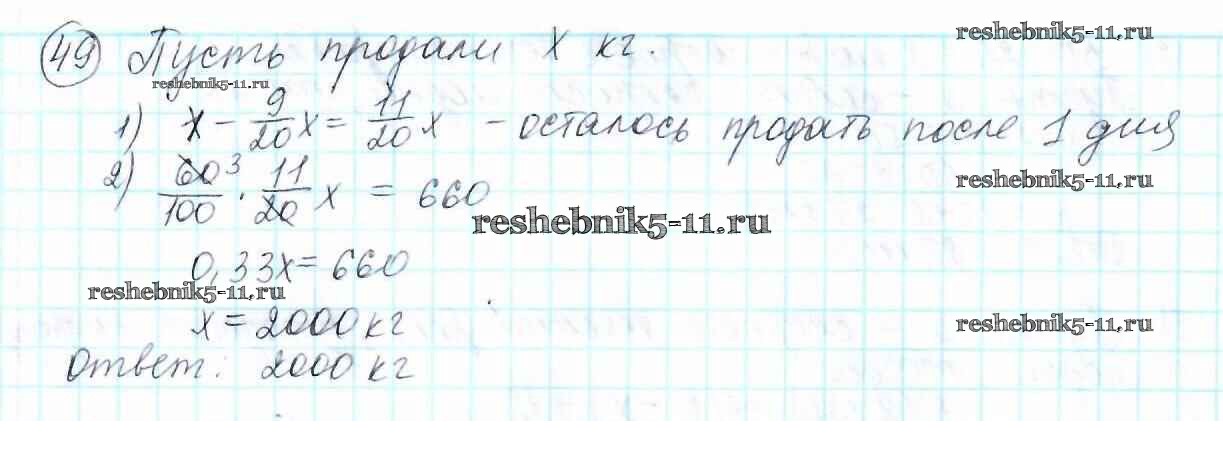 reshebnik5-11.ru
49 Пусть продали x кг.
reshebnik5-11.ru
1) x - 9/20 x = 11/20 x - осталось продать после 1 дня
2) 60/100 3 · 11/20 x = 660
reshebnik5-11.ru
reshebnik5-11.ru
0,33x = 660
reshebnik5-11.ru
x = 2000 кг
reshebnik5-11.ru
Ответ: 2000 кг